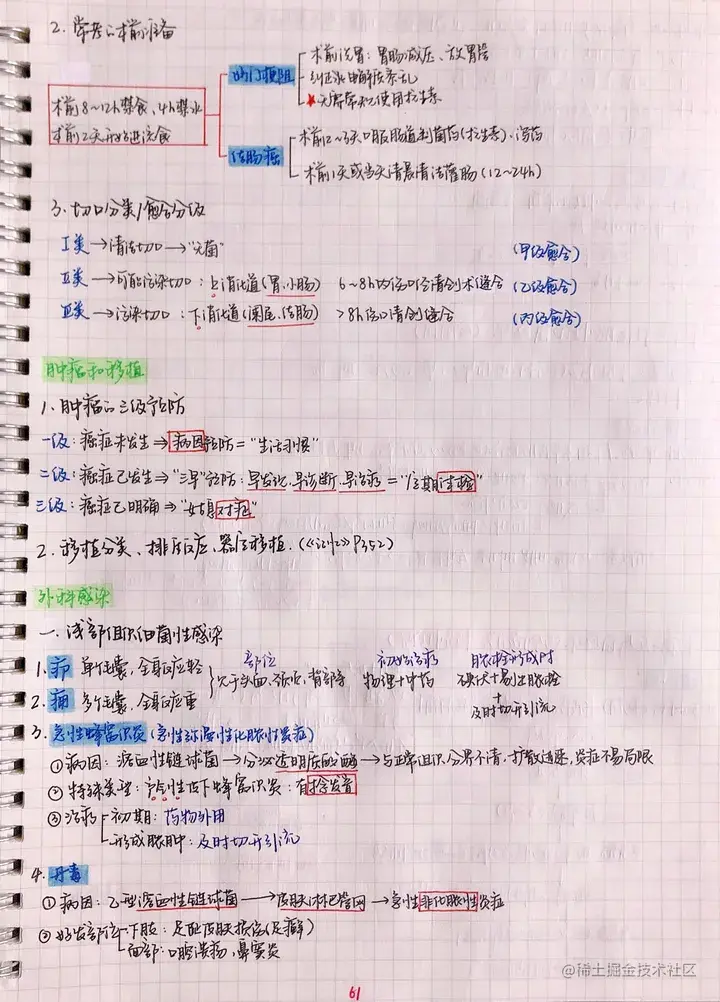 2. 常考的术前准备
术前8~12h禁食,4h禁水
术前2天开始进流食
幽门梗阻
术前洗胃:胃肠减压、放胃管
纠正水电解质紊乱
★无需常规使用抗生素
结肠癌
术前2~3天口服肠道制菌药(抗生素)、泻药
术前1天或当天清晨清洁灌肠(12~24h)
3. 切口分类/愈合分级
I类→清洁切口→"无菌" (甲级愈合)
II类→可能污染切口:上消化道(胃、小肠) 6~8h内伤口经清创术缝合 (乙级愈合)
III类→污染切口:下消化道(阑尾、结肠) >8h伤口清创缝合 (丙级愈合)
肿瘤和移植
1. 肿瘤的三级预防
一级:癌症未发生⇒病因预防="生活习惯"
二级:癌症已发生⇒"三早"预防:早发现、早诊断、早治疗="定期体检"
三级:癌症已明确⇒"姑息对症"
2. 移植分类、排斥反应、器官移植.(《记忆》P352)
外科感染
一、浅部组织细菌性感染
部位 初始治疗 脓栓形成时
1. 疖 单个毛囊,全身反应轻
2. 痈 多个毛囊,全身反应重
欠于头面、颈项、背部等 物理+中药 碘伏+剔出脓栓
+
及时切开引流
3. 急性蜂窝织炎(急性弥漫性化脓性炎症)
①病因:溶血性链球菌→分泌透明质酸酶→与正常组织分界不清,扩散迅速,炎症不易局限
②特殊类型:产气性皮下蜂窝织炎:有捻发音
③治疗
初期:药物外用
形成脓肿:及时切开引流
4. 丹毒
①病因:乙型溶血性链球菌→皮肤淋巴管网→急性非化脓性炎症
②好发部位
下肢:足趾皮肤损伤(足癣)
面部:口腔溃疡,鼻窦炎
61
@稀土掘金技术社区